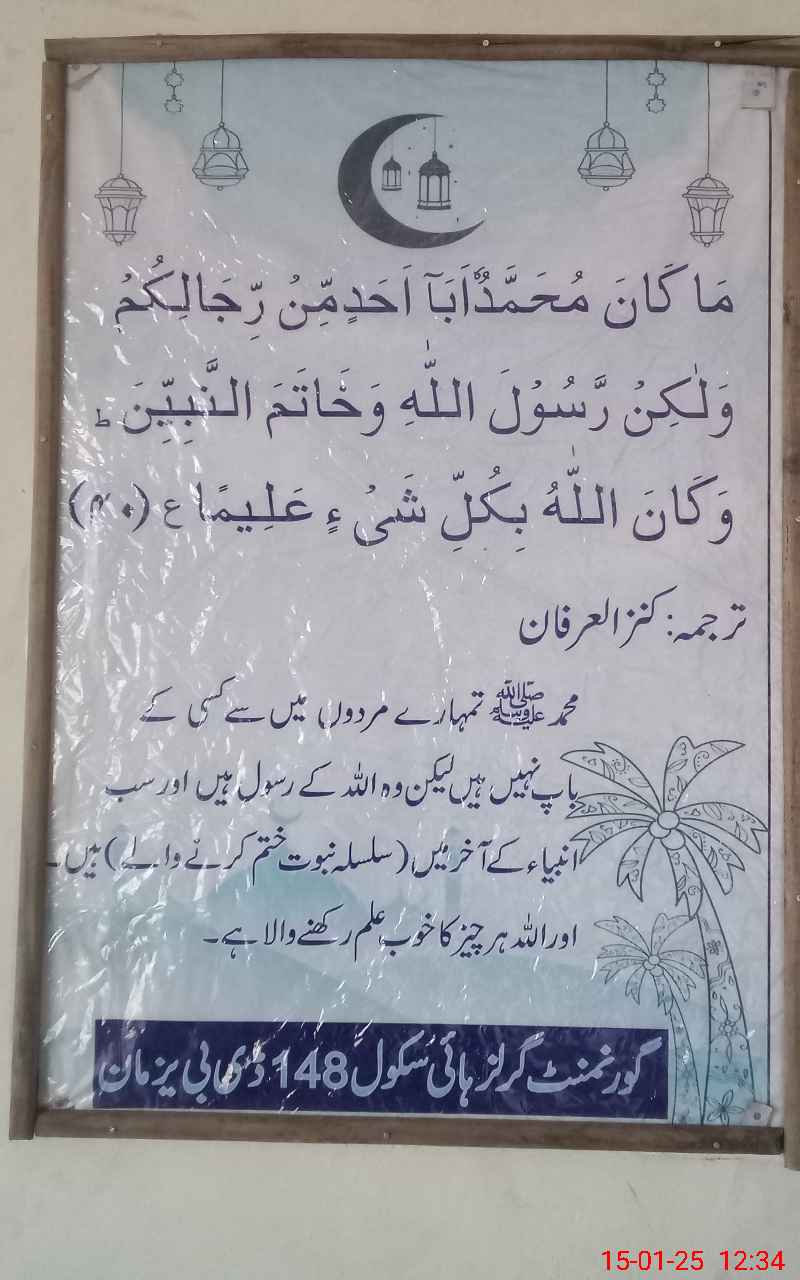 مَا كَانَ مُحَمَّدٌ اَبَاۤ اَحَدٍ مِّنْ رِّجَالِكُمْ
وَلٰكِنْ رَّسُوْلَ اللّٰهِ وَخَاتَمَ النَّبِیّٖنَ ؕ
وَكَانَ اللّٰهُ بِكُلِّ شَیْءٍ عَلِیمًا ع (۴۰)
ترجمہ: کنزالعرفان
محمد ﷺ تمہارے مردوں میں سے کسی کے
باپ نہیں ہیں لیکن وہ اللہ کے رسول ہیں اور سب
انبیاء کے آخر میں (سلسلہ نبوت ختم کرنے والے) ہیں۔
اور اللہ ہر چیز کا خوب علم رکھنے والا ہے۔
گورنمنٹ گرلز ہائی سکول 148 ڈی بی یزمان
15-01-25 12:34